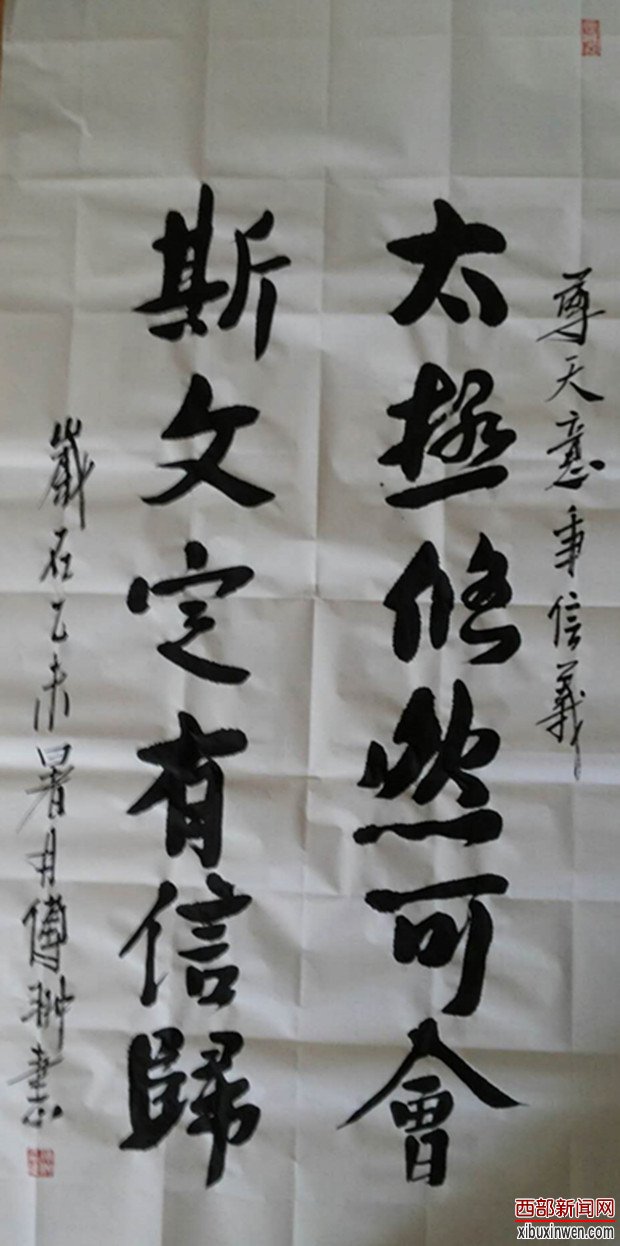 尊天意事信義
太極悠然可會
斯文定有信歸
歲在乙未暑月傅翀書
西部新闻网
xibuxinwen.com